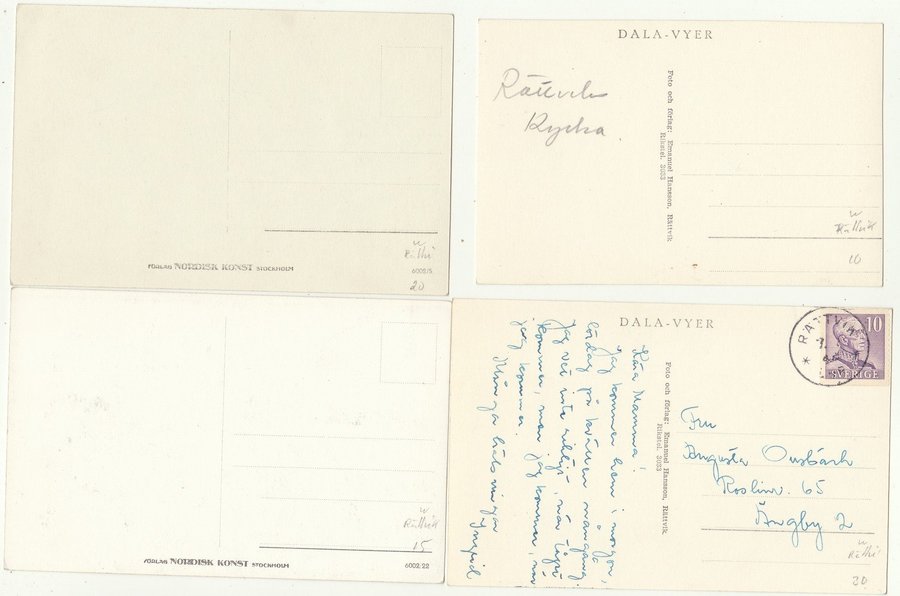 FÖRLAG NORDISK KONST STOCKHOLM
6002/5
20
DALA-VYER
Rättvik
Kyrka
Foto och förlag: Emanuel Hansson, Rättvik
Rikstel. 3033
Rättvik
10
FÖRLAG NORDISK KONST STOCKHOLM
6002/22
Rättvik
15
DALA-VYER
Kära Mamma!
Jag kommer hem i morgon,
lördag på kvällen någon gång.
Jag vet inte riktigt, när tåget
kommer, men jag kommer, när
jag kommer.
Många hälsningar
Ingrid
Foto och förlag: Emanuel Hansson, Rättvik
Rikstel. 3033
RÄTTVIK
10
SVERIGE
Fru
Augusta
Roslinv. 65
Ängby 2
20